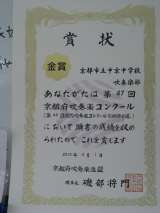 賞状
金賞
京都市立中京中学校
吹奏楽部
あなたがたは第47回
京都府吹奏楽コンクール
において頭書の成績を収め
られたのでこれを賞します
京都府吹奏楽連盟
理事長 磯部将門